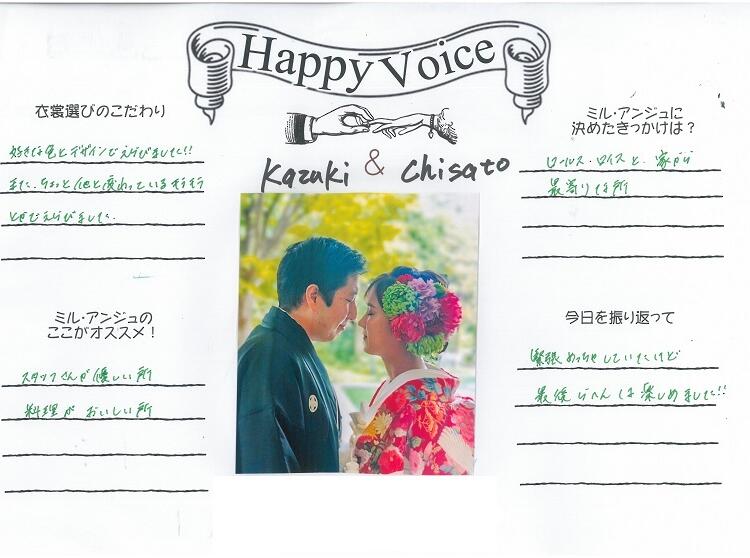 Happy Voice
衣裳選びのこだわり
好きな色とデザインでえらびました!!
また、ちょっと他と変わっている
とかでえらびました。
ミル・アンジュに
決めたきっかけは？
ロールス・ロイスと、家から
最寄りな所
Kazuki & Chisato
ミル・アンジュの
ここがオススメ！
スタッフさんが優しい所
料理がおいしい所
今日を振り返って
緊張めっちゃしていたけど
最後らへんは楽しめました!!